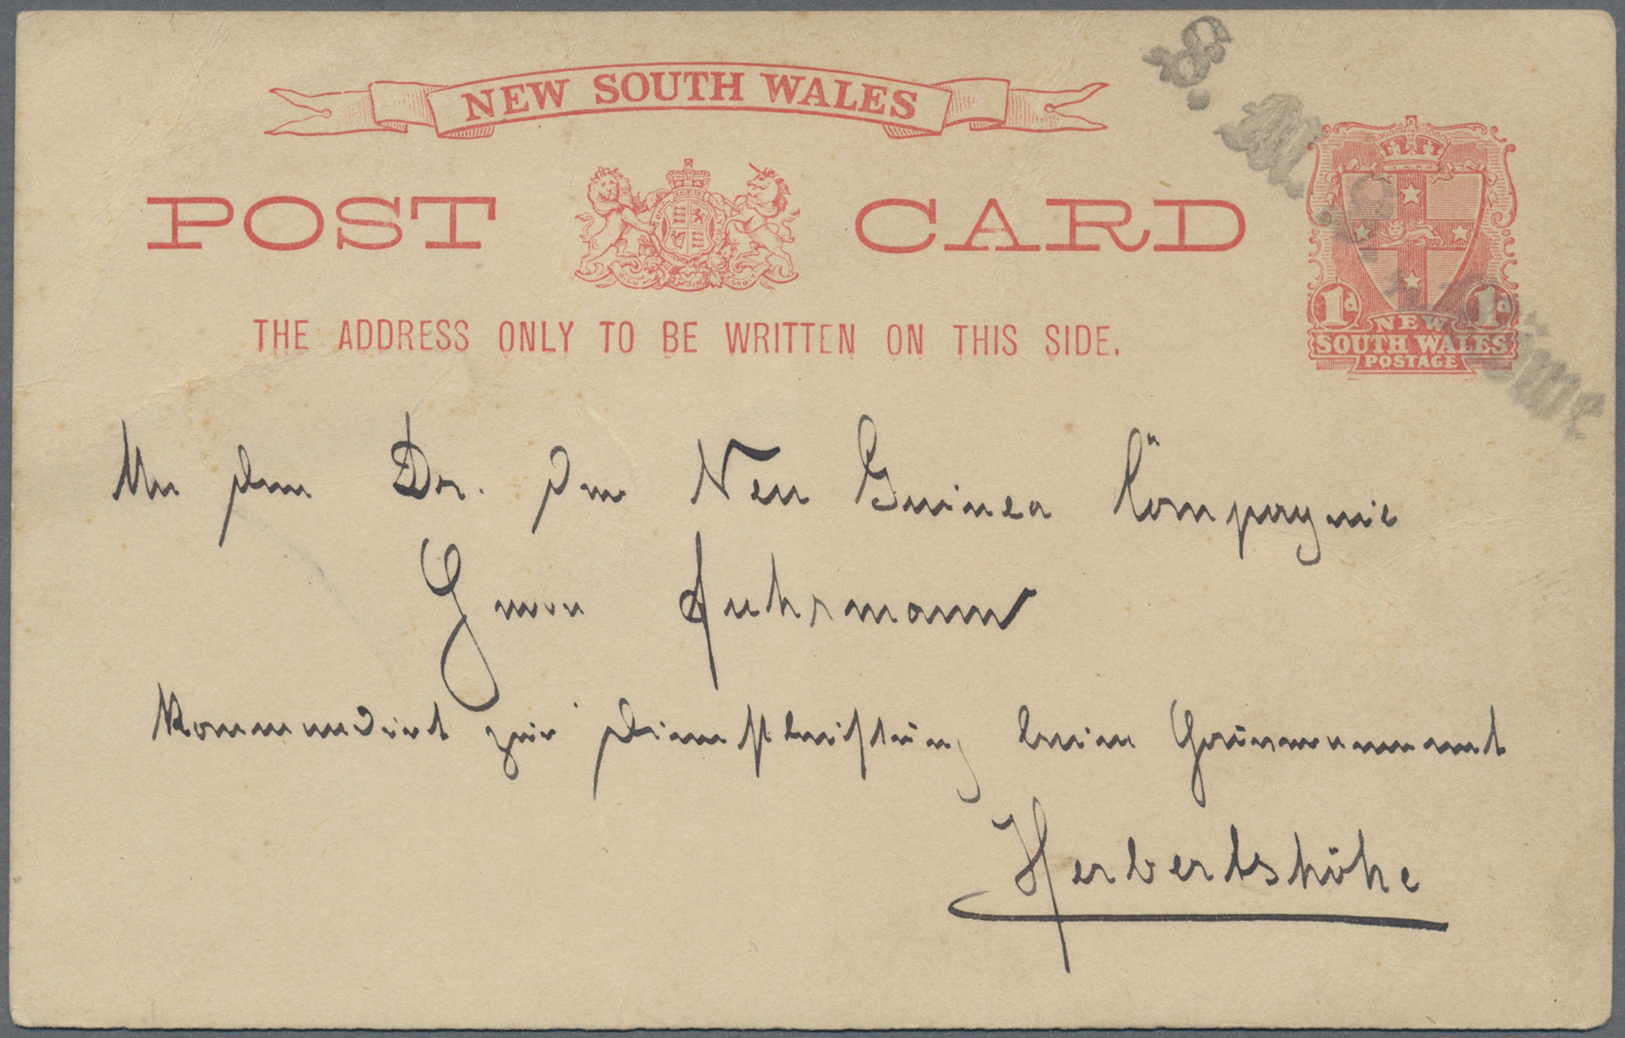 NEW SOUTH WALES
POST CARD
THE ADDRESS ONLY TO BE WRITTEN ON THIS SIDE.
S. M. S. „Möwe
1d 1d
NEW
SOUTH WALES
POSTAGE
An den Dr. der Neu Guinea Compagnie
Herrn Fuhrmann
Kommandirt zur Dienstleistung beim Gouvernement
Herbertshöhe